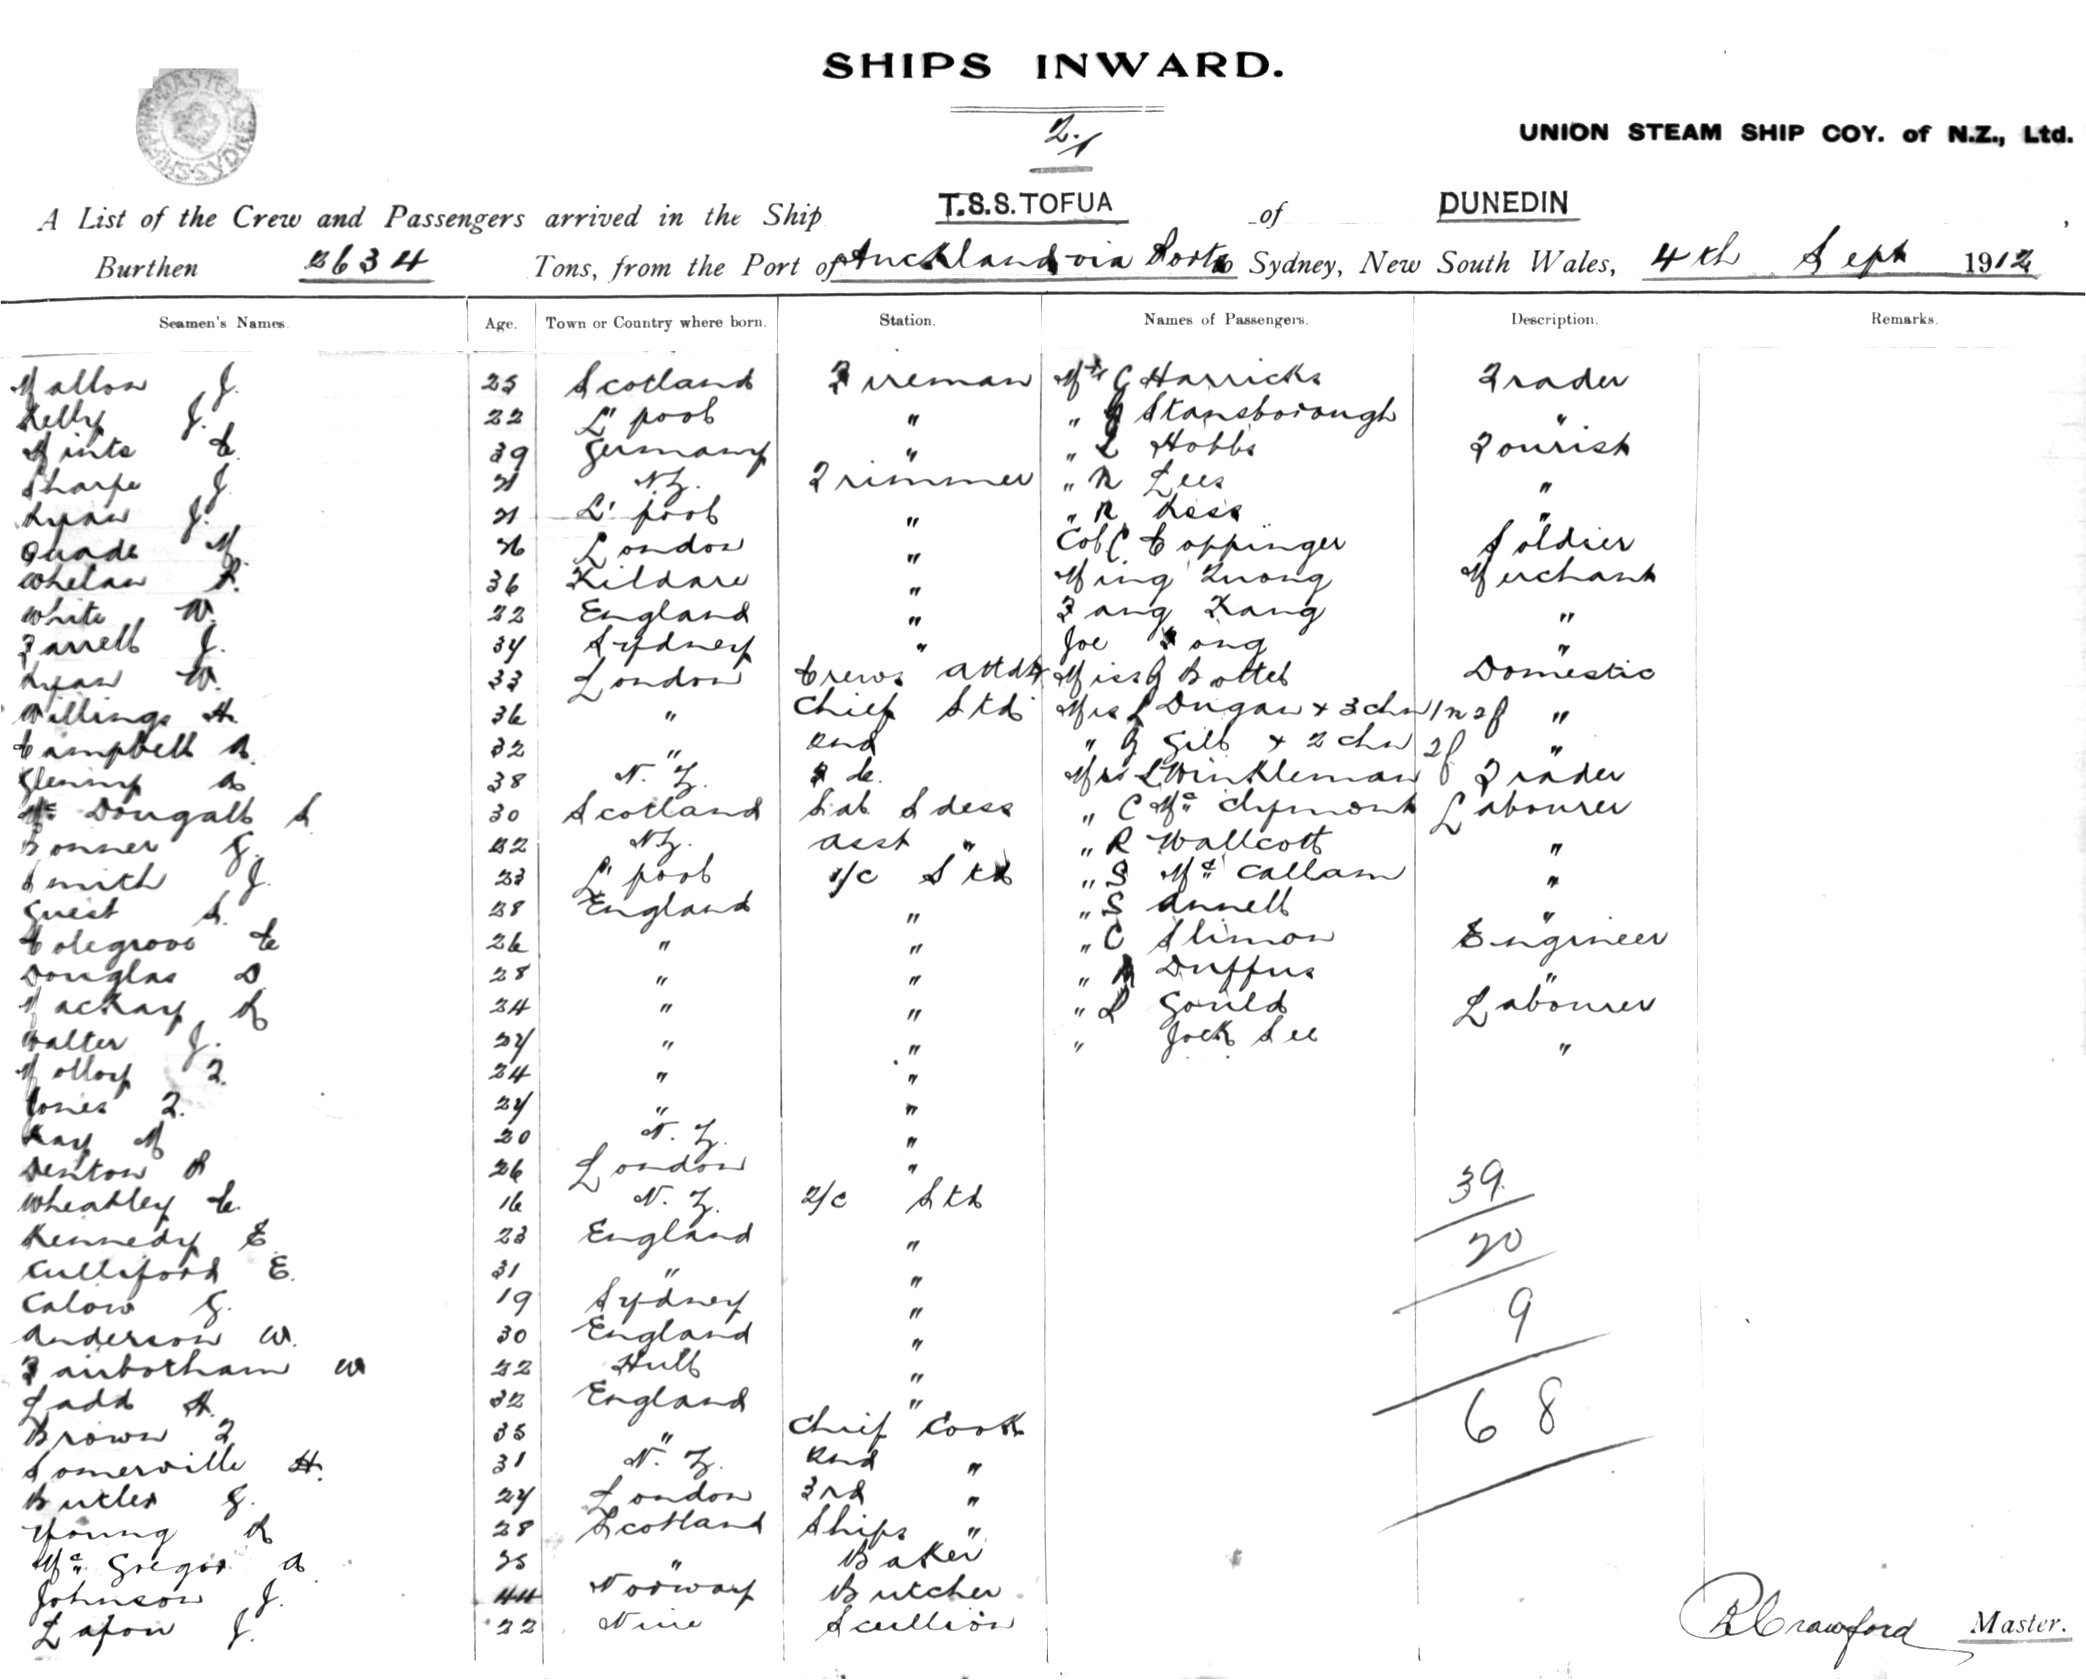 SHIPS INWARD.
2.
UNION STEAM SHIP COY. of N.Z., Ltd.
A List of the Crew and Passengers arrived in the Ship T.S.S. TOFUA of DUNEDIN
Burthen 2634 Tons, from the Port of Auckland via Ports to Sydney, New South Wales, 4th Sept 1912
Seamen's Names. Age. Town or Country where born. Station. Names of Passengers. Description. Remarks.
Mallon J. 25 Scotland Fireman Mr C Harricks Trader
Kelly J. 22 L'pool " " Stansborough "
Mints C. 39 Germany " " L Hobbs Tourist
Sharpe J. 21 N.Z. Trimmer " R Lees "
Ryan J. 21 L'pool " " R Kess "
Quade M. 26 London " Col C Coppinger Soldier
Whelan P. 36 Kildare " Ming Kuong Merchant
White W. 22 England " Fang Kang "
Farrell J. 34 Sydney " Joe Fong "
Ryan W. 33 London Crews Attdt Miss G Bottel Domestic
Willings H. 36 " Chief Std Mrs L Dugan + 3 chn 1m 2f "
Campbell A. 32 " 2nd " G Gill + 2 chn 2f "
Glenny A 38 N.Z. B.C. Mrs L Winkleman Trader
McDougall S 30 Scotland Sal Sdess " C McClymont Labourer
Bonner G. 22 N.Z. Asst " " R Wallcott "
Smith J. 23 L'pool 1/c Std " S McCallam "
Guest S. 28 England " " S Annell "
Colegrove C 26 " " " C Slimon Engineer
Douglas D 28 " " " Duffus "
MacKay R 24 " " " L Gould Labourer
Walter J. 24 " " " Jock See "
Molloy T. 24 " "
Jones T. 24 " "
Kay M 20 N.Z. "
Denton P 26 London "
Wheatley C. 16 N.Z. 2/c Std 39
Kennedy E. 23 England " 20
Culliford E. 31 " "
Calow G. 19 Sydney " 9
Anderson W. 30 England "
Fairbotham W 22 Hull "
Ladd H. 32 England " 68
Brown T 35 " Chief Cook
Somerville H. 31 N.Z. 2nd "
Butler G. 24 London 3rd "
Young R 28 Scotland Ships "
McGregor A 25 " Baker
Johnson J. 44 Norway Butcher
Lafon J. 22 Nice Scullion
Crawford Master.